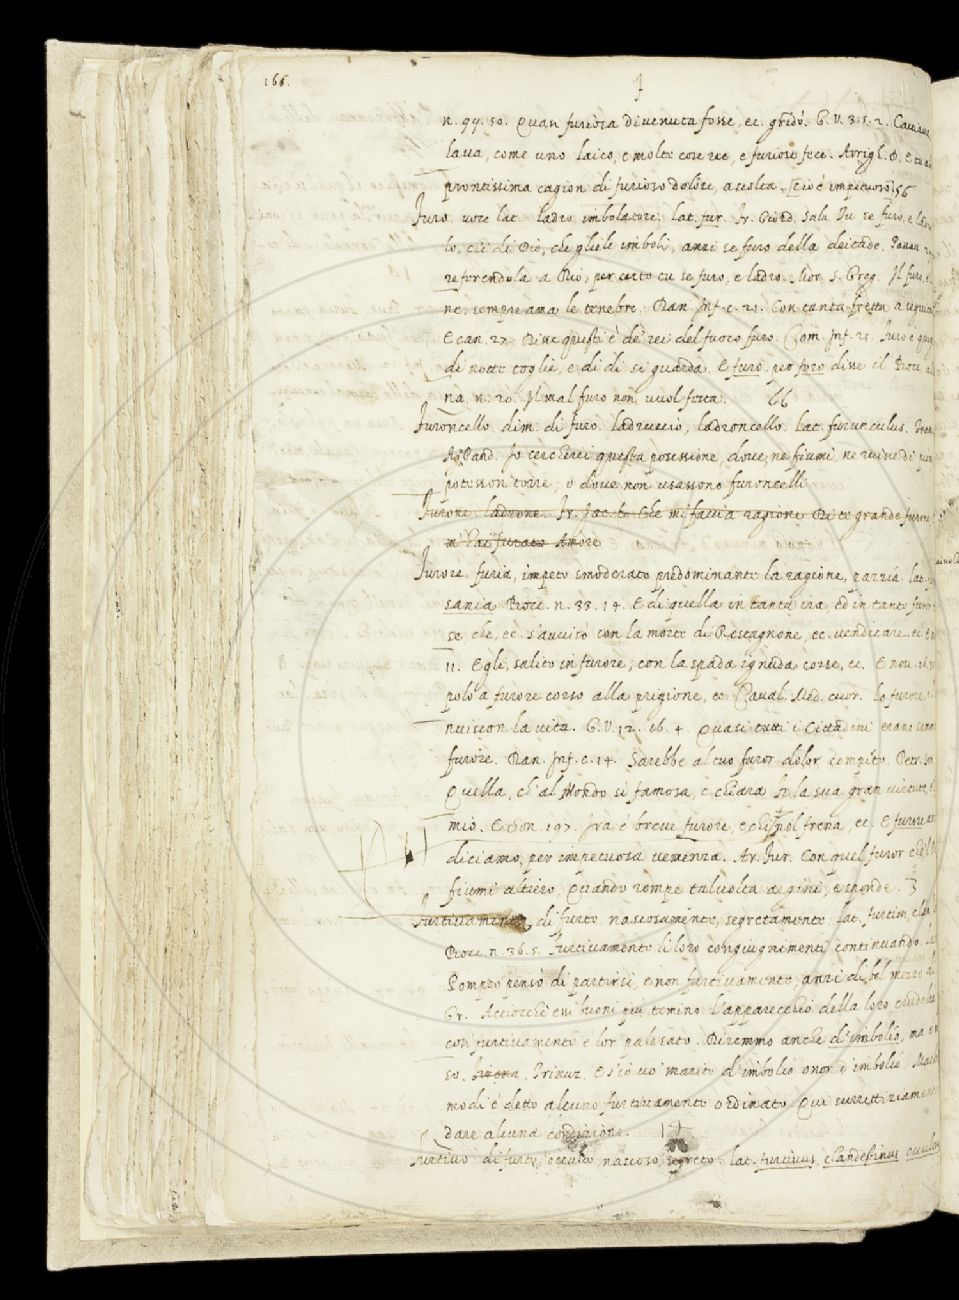 166. F
n. 99. 50. Quan furiosa divenuta fosse, ec. gridò. G. V. 8. 5. 2.
lava, come uno laico, e molte cose ree, e furiose fece. Arrigh.
prontissima cagion di furioso dolore, accolta [cioè impetuoso] 56
Furo. voce lat. ladro, imbolatore. lat. fur. Fr. Giord. Salv. Tu se furo, e
lo, ch'è di Dio, che gliele imboli, anzi se furo della deitade.
referendola a Dio, per certo tu se furo, e ladro. Mor. S. Greg. Il furo,
ne, sempre ama le tenebre. Dan. Inf. c. 21. Con tanta fretta a seguitar
E can. 27. Disse questi è de' rei del fuoco furo. Com. Inf. 21. furo è quei
di notte toglie, e di dì si guarda. E furo per foro disse il Bocc.
na. n. 20. Il mal furo non vuol festa. 66
Furoncello dim. di furo. ladruccio, ladroncello. lat. furunculus.
Ag. Pand. Io cercherei questa possessione, dove, ne fiumi ne ruine di
potesson torre, o dove non usassono furoncelli
Furone. ladrone. Fr. Jac. t. Che mi faccia ragione Di te grande furone
m' hai furato Amore
Furore. furia, impeto smoderato predominante la ragione, pazzia. lat.
sania Bocc. n. 33. 14. E di quella in tanta ira, ed in tanto furo
se che, ec. s'avvisò con la morte di Restagnone, ec. vendicare. ec.
11. Egli, salito in furore, con la spada ignuda corse, ec. E nov. 16.
polo a furore corso alla prigione, ec. Caval. Med. cuor. Lo furore,
nuiscon la vita. G. V. 12. 16. 4. Quasi tutti i Cittadini erano
furore. Dan. Inf. c. 14. Sarebbe al tuo furor dolor compito. Petr.
Quella, ch' al Mondo sì famosa, e chiara Fe la sua gran virtute,
mio. E Son. 197. Ira è breve furore, e chi nol frena, ec. E furore
diciamo, per impetuosa veemenza. Ar. Fur. Con quel furor che
fiumi altiero, Quando rompe talvolta argini, e sponde. 3
Furtivamente, di furto, nascosamente, segretamente. lat. furtim,
Bocc. n. 36. 5. furtivamente li loro congiugnimenti continuando.
Pompeo pensò di partirsi, e non furtivamente, anzi di bel mezzo
Gr. Acciocchè essi buoni più temino l'apparecchio della loro
con furtivamente e lor palesato. Diremmo anche d' imbolio,
so. Firenz. Trinuz. Es' io vo marito d' imbolio onor d' imbolio
modi è detto alcuno furtivamente ordinato. Qui surrettiziamente
dare alcuna condizione.
Furtivo di furto, occulto nascoso, segreto. lat. furtivus, clandestinus